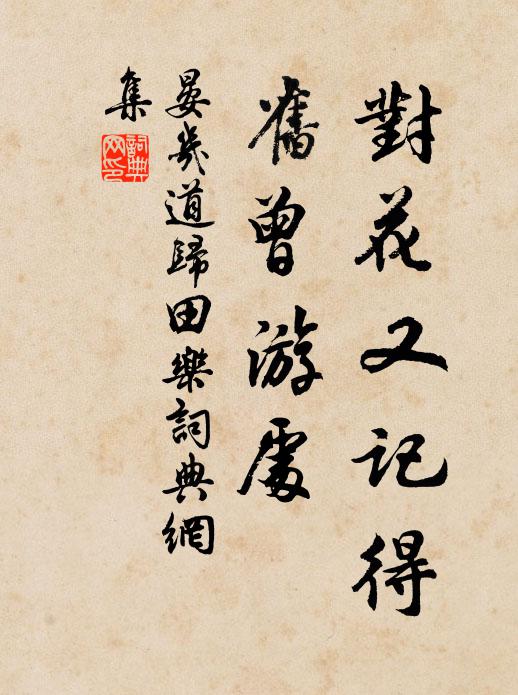 對花又記得
舊曾游處
晏幾道歸田樂詞典網
集
詞典
网印